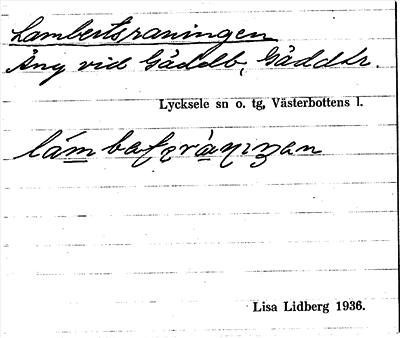 Lambertsraningen
Äng vid Gäddb, Gäddtr.
Lycksele sn o. tg, Västerbottens l.
Lisa Lidberg 1936.